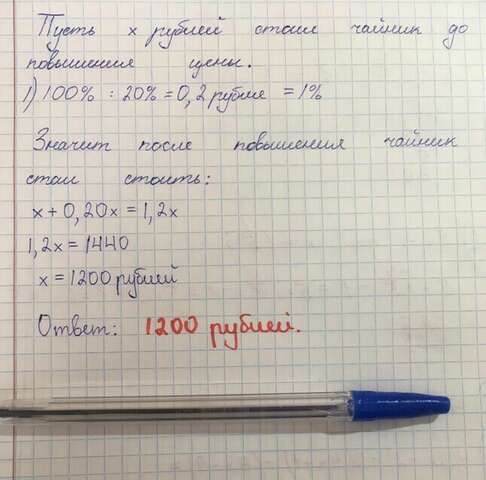 Пусть х рублей стоил чайник до
повышения цены.
1) 100% : 20% = 0,2 рубле = 1%
Значит после повышения чайник
стал стоить:
х + 0,20х = 1,2х
1,2х = 1440
х = 1200 рублей
Ответ: 1200 рублей.